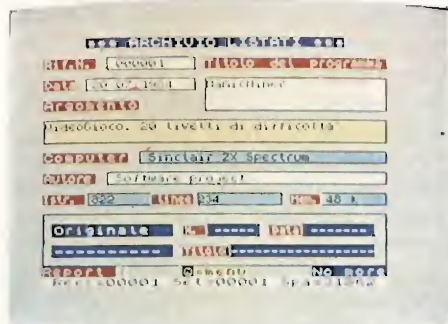 *** ARCHIVIO LISTATI ***
Rif.N. 000001 Titolo del programma
Data 20/07/1984 ManicMiner
Argomento
VideoGioco. 20 livelli di difficolta'
Computer Sinclair ZX Spectrum
Autore Software project
Istr. 822 Linee 234 Mem. 48 K
Originale N. ----- Data -------
----------- Titolo --------------
Report @=menu No more
Rec.:00001 Sel:00001